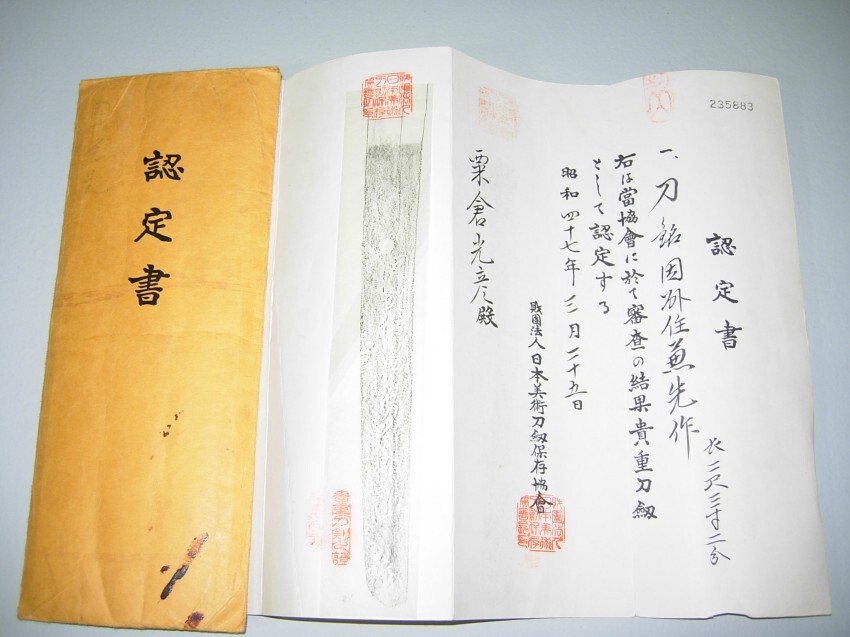 認定書
235883
認定書
一、刀 銘 因州住兼先作
長二尺三寸二分
右は當協會に於て審査の結果貴重刀劔
として認定する
昭和四十七年三月二十五日
財團法人日本美術刀劔保存協會
粟倉光 殿